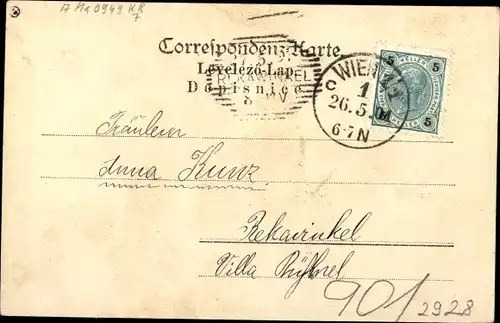 A M10949 KR
7
Correspondenz-Karte
Levelező-Lap
Dopisnice
REKAWINKEL
WIEN
C
1
26.5.
6-7N
5
HELLER
5
5
Fräulein
Anna Kunz
Rekawinkel
Villa
901
2928